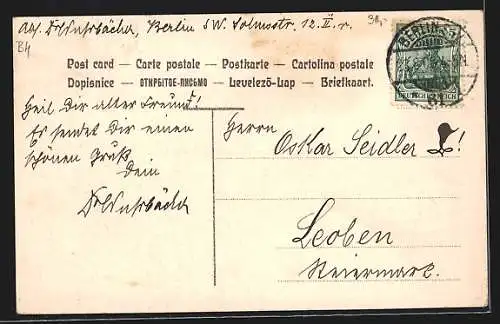 Abs. Berlin SW. Solmsstr. 12. II. r.
B4
Post card — Carte postale — Postkarte — Cartolina postale
Dopisnice — ОТКРЫТОЕ-ПИСЬМО — Levelező-Lap — Briefkaart.
BERLIN S.W.
DEUTSCHES REICH
Heil Dir alter Freund!
Es sendet Dir einen
schönen Gruß
Dein
Herrn
Oskar Seidler !
Leoben
Steiermark.